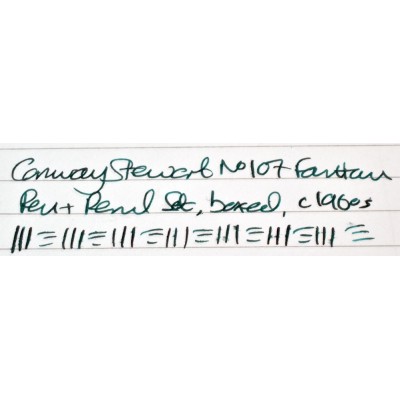 Conway Stewart No 107 Fountain
Pen + Pencil Set, boxed, c1960s